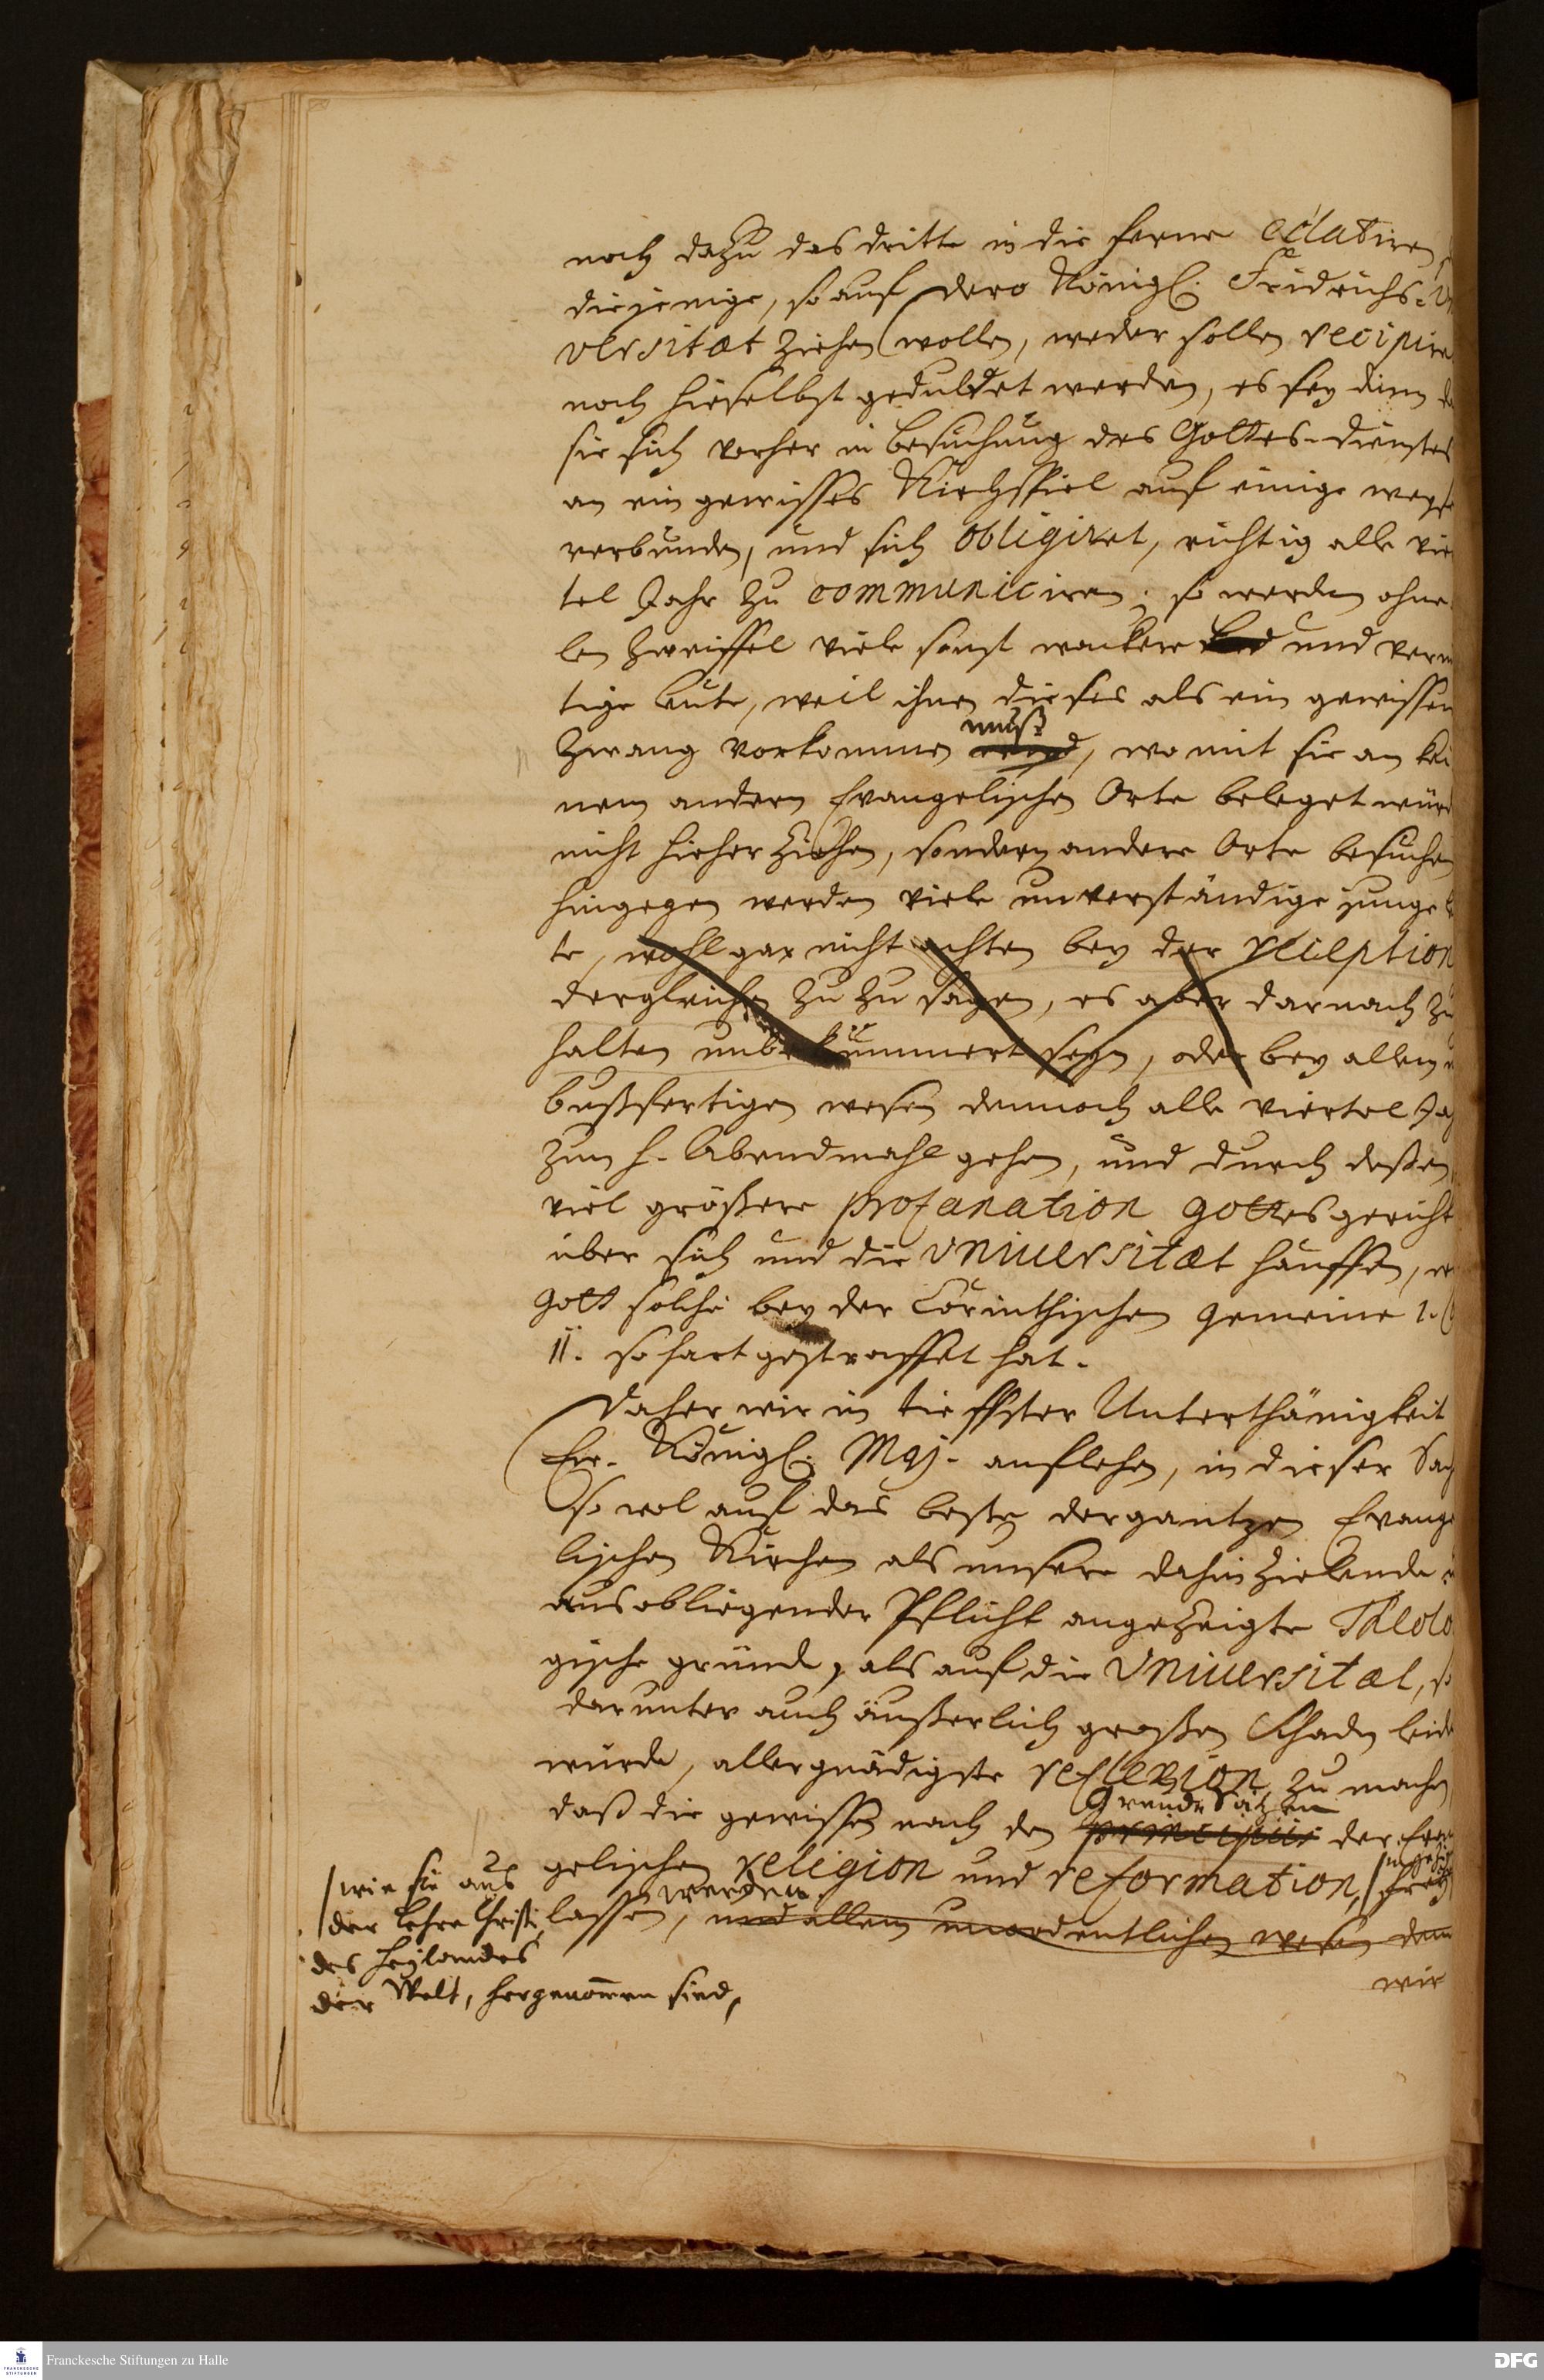 noch dazu das dritte in die ferne eclatiren,
diejenige, so auf dero Königl. Fridrichs-Un
versitæt ziehen wollen, weder sollen recipire
noch hieselbst geduldet werden, es sey denn d
sie sich vorher in besuchung des Gottes-dienstes
an ein gewisses Kirchspiel auf einige weyse
verbunden, und sich obligiret, richtig alle vier
tel Jahr zu communiciren; so werden ohne
len Zweiffel viele sonst wackere und vern
tige leute, weil ihnen dieses als ein gewissen
Zwang vorkommen muß wird, womit sie an kei
nem andern Evangelischen Orte beleget würd
nicht hieher ziehen, sondern andere Orte besuchen
hingegen werden viele unverständige junge l
te, wohl gar nicht achten bey der reception
dergleichen zu zu sagen, es aber darnach zu
halten unbekümmert seyn, oder bey allem u
bußfertigen wesen dennoch alle viertel Jah
zum h. Abendmahl gehen, und durch deßen
viel größere profanation Gottes gericht
über sich und die Vniuersitæt häuffen, w
Gott solche bey der Corinthischen Gemeine 1. C
11. so hart gestraffet hat.
Daher wir in tieffster Unterthänigkeit
Ew. Königl. Maj. anflehen, in dieser Sach
so wol auf das beste der gantzen Evange
lischen Kirchen als unsere dahin zielende
aus obliegender Pflicht angezeigte Theolo
gische gründe, als auf die Vniuersitæt, so
darunter auch äußerlich großen Schaden leid
würde, allergnädigste reflexion zu machen
daß die gewissen nach den Grund-Sätzen principiis der Evan
gelischen religion und reformation, frey
lassen werden, und allem unordentlichen wesen dem
wir
wie sie aus
der Lehre Christi,
des Heylandes
der Welt, hergenom̄en sind,
Franckesche Stiftungen zu Halle
FRANCKESCHE STIFTUNGEN
DFG